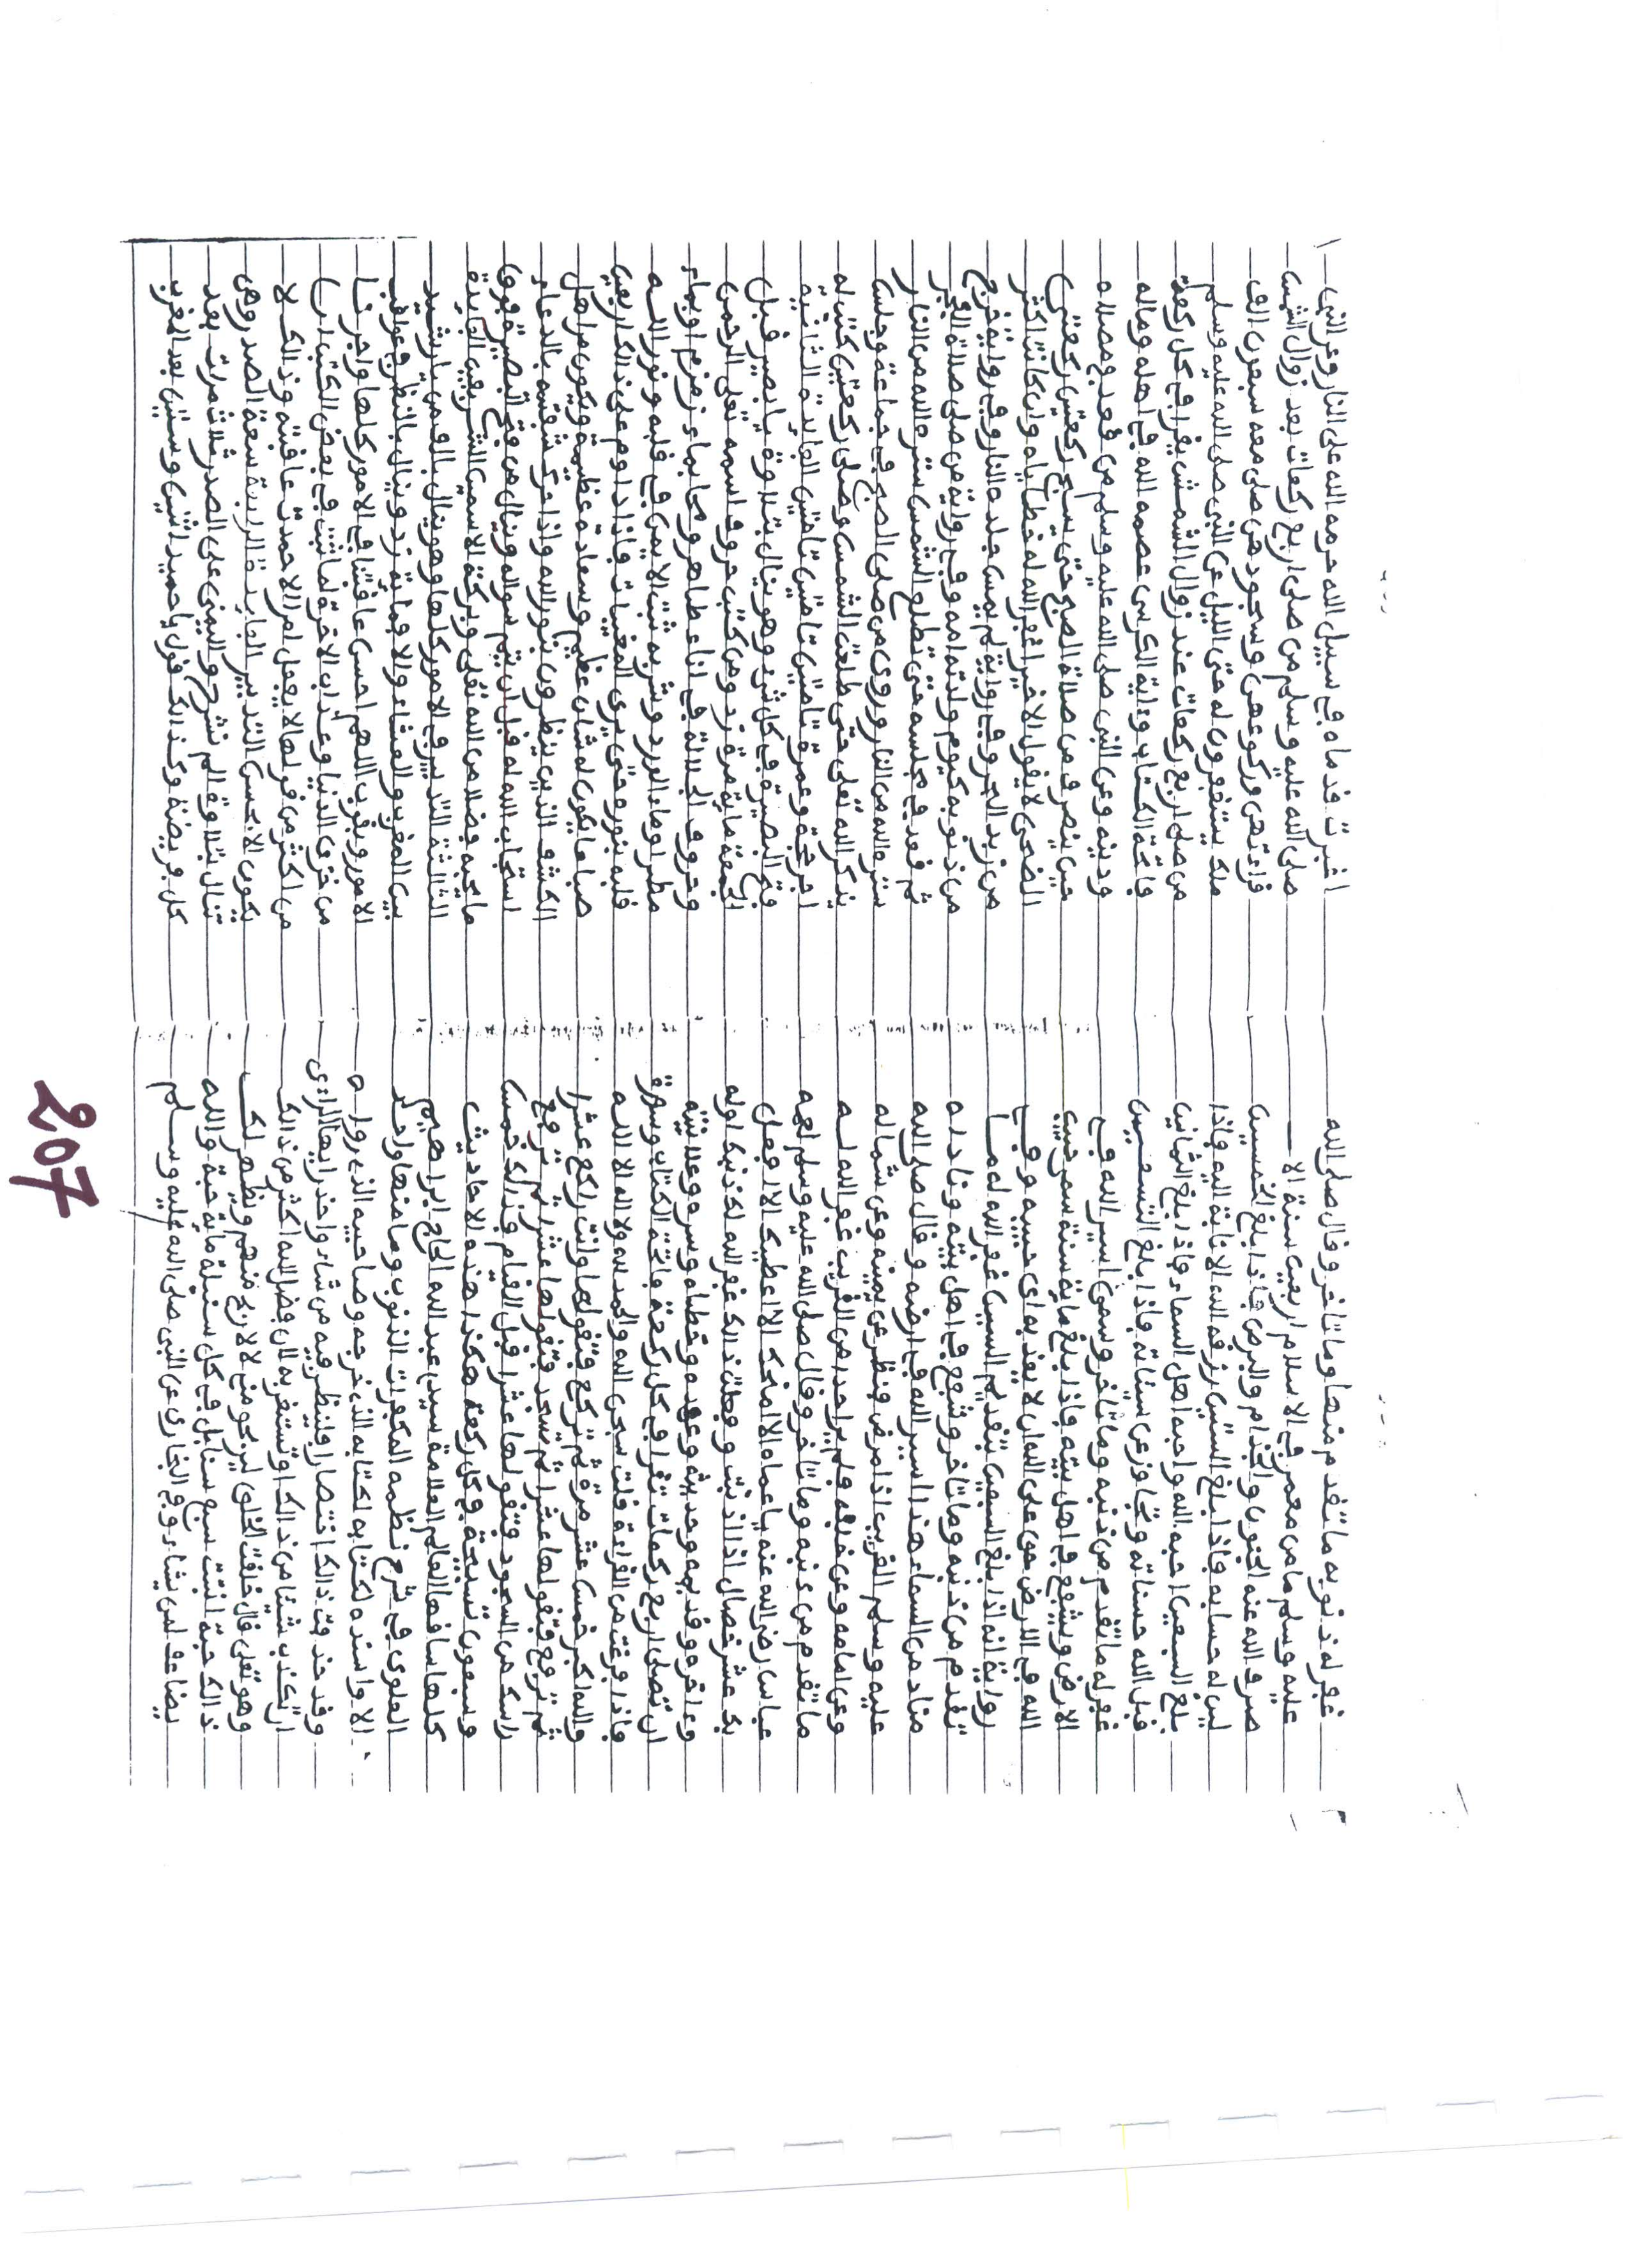 غفر له ذنوبه ما تقدم منها وما تاخر وقال صلى الله
عليه وسلم ما من معمر في الاسلام اربعين سنة الا
صرف الله عنه الجنون والجذام والبرص فاذا بلغ الخمسين
لين له حسابه فاذا بلغ الستين رزقه الله الانابة اليه فاذا
بلغ السبعين احبه الله واحبه اهل السماء فاذا بلغ الثمانين
قبل الله حسناته وتجاوز عن سيئاته فاذا بلغ التسعين
غفر له ما تقدم من ذنبه وما تاخر وسمي اسير الله في
الارض ويشفع في اهل بيته فاذا بلغ مائة سنة سمي حبيب
الله في الارض حق على الله ان لا يعذب اي حبيبه وفي
رواية انه اذا بلغ التسعين بتقديم السين غفر الله له ما
تقدم من ذنبه وما تاخر وشفع في اهل بيته وناداه
مناد من السماء هذا اسير الله في ارضه وقال صلى الله
عليه وسلم الغريب اذا مرض فنظر عن يمينه وعن شماله
وعن امامه وعن خلفه فلم ير احدا من القريب غفر الله له
ما تقدم من ذنبه وما تاخر وقال صلى الله عليه وسلم لعمه
عباس رضي الله عنه يا عماه الا امنحك الا اعطيك الا افعل
بك عشر خصال اذا انت فعلت ذلك غفر الله لك ذنبك اوله
وءاخره وقديمه وحديثه وعمده وخطأه وسره وعلانيته
ان تصلي اربع ركعات تقرا في كل ركعة فاتحة الكتاب وسورة
فاذا فرغت من القراءة قلت سبحن الله والحمد لله ولا اله الا الله
والله اكبر خمس عشر مرة ثم تركع فتقولها وانت راكع عشرا
ثم ترفع فتقولها عشرا ثم تسجد فتقولها عشرا ثم ترفع
راسك من السجود فتقولها عشرا قبل القيام فذلك خمس
وسبعون تسبيحة في كل ركعة هكذا هذه الاحاديث
كلها ساقها العالم العلامة سيد عبد الله الحاج ابراهيم
العلوي في شرح نظمه المكفرات الذنوب وما منها واحد
الا واسنده لكتابه الذي خرجه وصاحبه الذي رواه
وقد حذفت ذالك اختصارا فلينظر فيه من شاء واحذر ايها الرائي
ان تكذب شيئا من ذالك او تستغربه لان فضل الله اكثر من ذالك
وهو تعلى قال خلقت الخلق ليربحوا مني لا لاربح منهم وينظر لك
ذالك حبة انبتت سبع سنابل في كل سنبلة مائة حبة والله
يضاعف لمن يشاء وفي البخاري عن النبي صلى الله عليه وسلم
اغبرت قدماه في سبيل الله حرمه الله على النار وعن النبي
صلى الله عليه وسلم من صلى اربع ركعات بعد زوال الشمس
قراءتهن وركوعهن وسجودهن صلى معه سبعون الف
ملك يستغفرون له حتى الليل عن النبي صلى الله عليه وسلم
من صلى اربع ركعات عند زوال الشمس يقرا في كل ركعة
فاتحة الكتاب وءاية الكرسي عصمه الله في اهله وماله
ودينه وعن النبي صلى الله عليه وسلم من قعد في مصلاه
حين ينصرف من صلاة الصبح حتى يسبح ركعتين ركعتي
الضحى لا يقول الا خيرا غفر الله له خطاياه وان كانت اكثر
من زبد البحر وفي رواية لم يمس جلده النار وفي رواية خرج
من ذنوبه كيوم ولدته امه وفي رواية من صلى صلاة الفجر
ثم قعد في مجلسه حتى تطلع الشمس ستره الله من النار
ستره الله من النار وروي من صلى الصبح في جماعة وجلس
يذكر الله تعلى حتى طلعت الشمس وصلى ركعتين كتب له
اجر حجة وعمرة تامتين تامتين تامتين الفائدة الثانية
فتح البصيرة في كل شيء وهو ينال بتلاوة يا بصير قبل
الجمعة مائة مرة ومن كتب حروف اسمه تعلى الرحمن
وحروف الجلالة في اناء طاهر ومحا بماء زمزم او بماء
مطر او ماء الورد وشربه ثبت الايمن في قلبه ونور الله
قلبه بنوره حتى يرى المغيبات فاذا داوم على ذالك اربعين
صباحا يكون له شان عظيم وسعادة عظيمة ويكون من اهل
الكشف الذين ينظرون بنور الله واذا حرك شفتيه بالدعاء
استجاب الله له قبل ان يتم سواله وينال من فتح البصيرة فوق
ما يحبه فضلا من الله تعلى وبركة الاسمين الشريفين الفايدة
الثالثة التدبير في الامور كلها وهو ينال بالف من يا رشيد
بين المغرب والعشاء والا فمائة مرة وينال بالنظر في عواقب
الامور وبقول اللهم احسن عاقبتنا في الامور كلها واجرنا
من خزي الدنيا وعذاب الاخرة لما ثبت في بعض الكتب ان
من اكثر من قولها لا يعمل امرا الا حمدت عاقبته وذالك لا
يكون الا بحسن التدبير الفايدة الرابعة سعة الصدر وهي
تنال بتلاوة الم نشرح واليمنى على الصدر ثلاث مرات بعد
كل فريضة وكذالك قول يا حميد اثنين وستين بعد المغرب
207